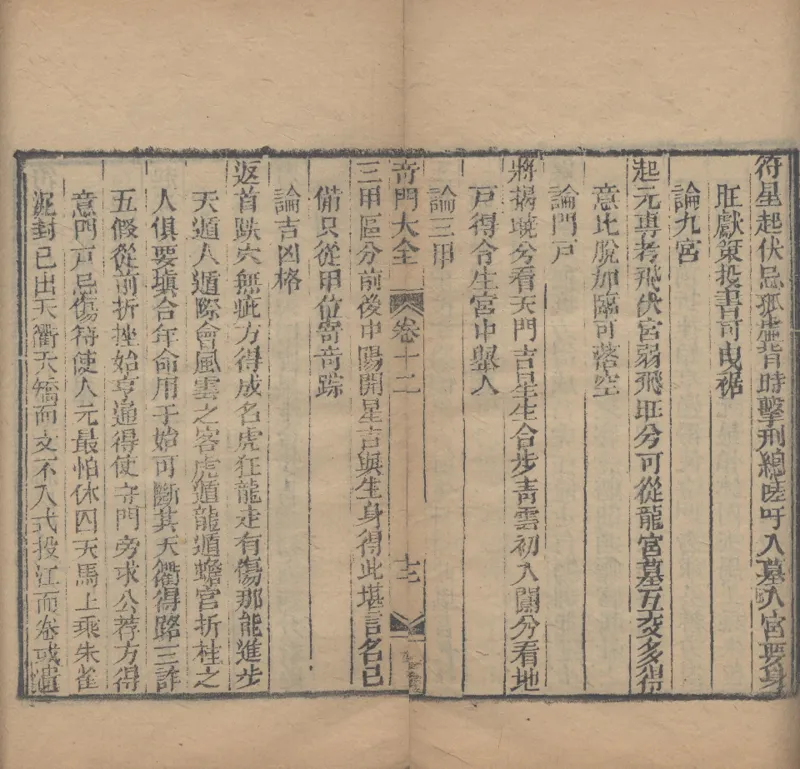 符星起伏忌孤虛背時擊刑總嗟吁入墓入宮要身
旺獻策投書可曳裾
論九宮
起元專考飛伏宮弱飛旺分可從龍宮墓互交多得
意比脫加臨可落空
論門戶
將揭曉分看天門吉星生合步青雲初入闈分看地
戶得令生宮中舉人
論三甲
奇門大全 卷十二 十二
三甲區分前後中陽開星吉與生身得此堪言名已
備只從甲位寄奇踪
論吉凶格
返首跌穴無疵方得成名虎狂龍走有傷那能進步
天遁人遁際會風雲之客虎遁龍遁蟾宮折桂之
人俱要填合年命用于始可斷其天衢得路三詐
五假從前折挫始亨通得使守門旁求公荐方得
意門戶忌傷符使人元最怕休囚天馬上乘朱雀
泥封已出天衢天矯而文不入式投江而卷或遺